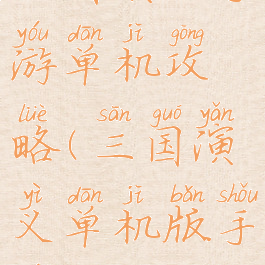 yóu dān jī gōng
游单机攻
lüè sān guó yǎn
略(三国演
yì dān jī bǎn shǒu
义单机版手